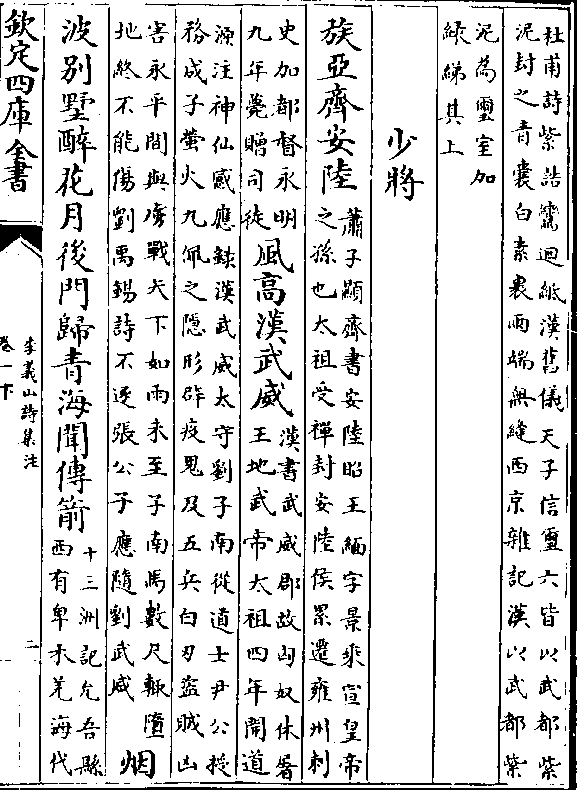 杜甫詩紫誥鸞迴紙漢舊儀天子信璽六皆以武都紫
泥封之青囊白素裏兩端無縫西京雜記漢以武都紫
泥為璽室加
綠綈其上
少將
族亞齊安陸
蕭子顯齊書安陸昭王緬字景業宣皇帝
之孫也太祖受禪封安陸侯累遷雍州刺
史加都督永明
九年薨贈司徒
風高漢武威
漢書武威郡故匈奴休屠
王地武帝太祖四年開道
源注神仙感應錄漢武威太守劉子南從道士尹公授
務成子螢火丸佩之隱形辟疫鬼及五兵白刃盜賊凶
害永平間與虜戰矢下如雨未至子南馬數尺輒墮
地終不能傷劉禹錫詩不逐張公子應隨劉武威
烟
波別墅醉花月後門歸青海聞傳箭
十三洲記允吾縣
西有卑禾羌海代
欽定四庫全書
李義山詩集注
卷一下
二